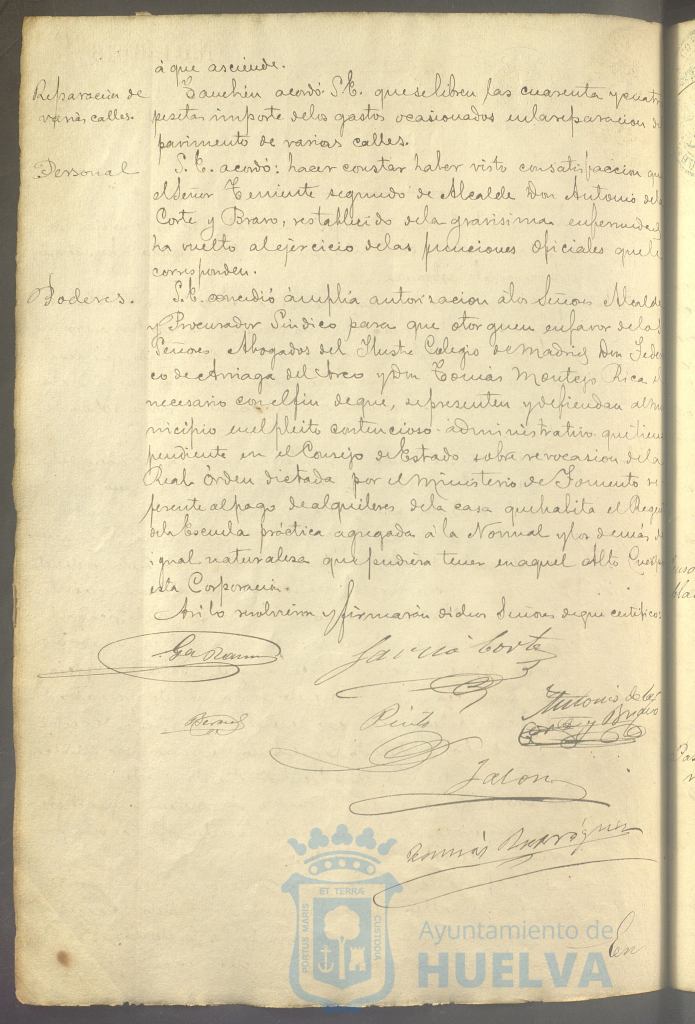 á que asciende.
Reparación de
varias calles.
Tambien acordó S.E. que se libren las cuarenta y cuatro
pesetas importe delos gastos ocasionados en la reparacion de
pavimento de varias calles.
Personal
S. E. acordó: hacer constar haber visto con satisfaccion que
el Señor Teniente segundo de Alcalde Don Antonio de la
Corte y Bravo, restablecido dela gravisima enfermedad
ha vuelto al ejercicio delas funciones oficiales que le
corresponden.
Poderes.
S.E. concedió ámplia autorizacion álos Señores Alcalde
y Procurador Síndico para que otorguen enfavor delos
Señores Abogados del Ilustre Colegio de Madrid Don Fede
co de Arriaga del Arco y Don Tomás Montejo Rica el
necesario con el fin deque, representen y defiendan al mu
nicipio en el pleito contencioso-administrativo que tiene
pendiente en el Consejo de Estado sobre revocacion de la
Real Órden dictada por el Ministerio de Fomento re
ferente al pago de alquileres dela casa que habita el Rege
dela Escuela práctica agregada á la Normal y los demás de
igual naturaleza que pudiera tener en aquel Alto Cuerpo
esta Corporación.
Así lo resolvieron y firmarán dichos Señores deque certifico:
García Corte
Pinto
Antonio de la
Corte y Bravo
Jalon
Tomás Rodríguez
En
PORTUS MARIS
ET TERRA
CUSTODIA
Ayuntamiento de
HUELVA